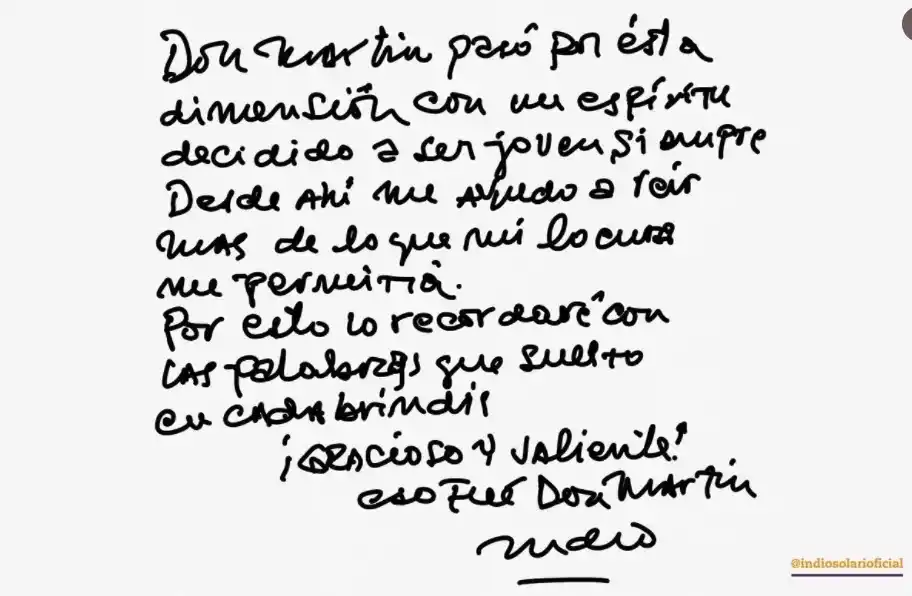 Don Martin pasó por ésta
dimensión con un espíritu
decidido a ser joven siempre
Desde ahi me ayudo a reir
mas de lo que mi locura
me permitía.
Por esto lo recordaré con
las palabras que suelto
en cada brindis
¡GRACIOSO Y VALIENTE!
eso Fué Don Martin
Indio
@indiosolarioficial